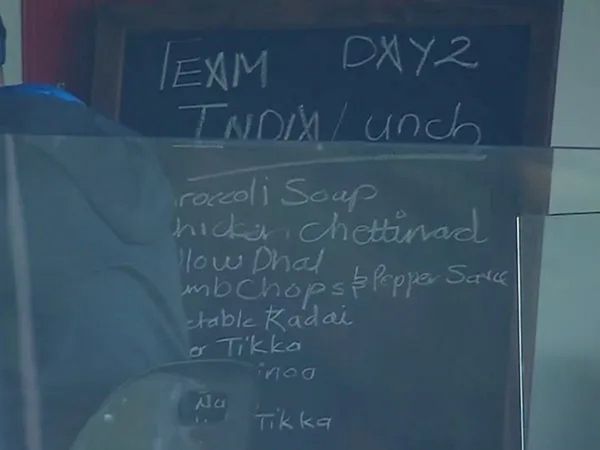 TEAM DAY2
INDIA Lunch
roccoli Soap
hicken Chettinad
llow Dhal
mb Chops & Pepper Sauce
etable Kadai
Tikka
inoa
Tikka